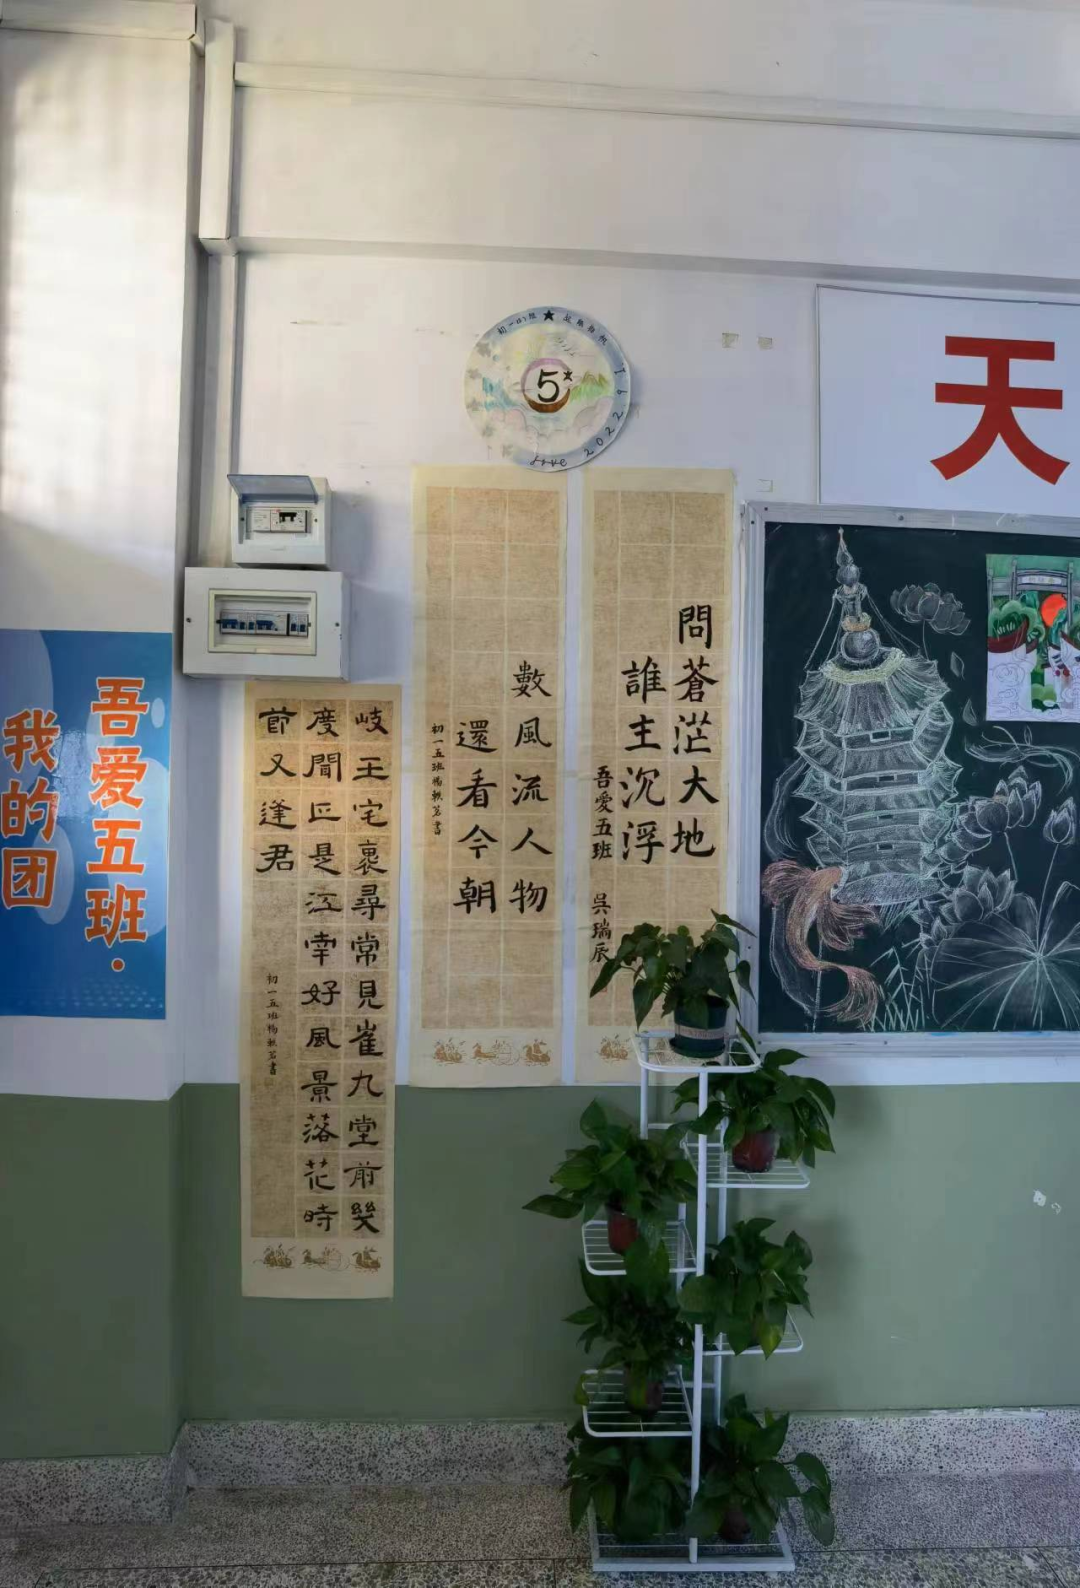 天
初一(5)班 ★
5
love 2022.9.1
問蒼茫大地
誰主沉浮
吾愛五班 吳瑞辰
數風流人物
還看今朝
初一五班楊軼茗書
岐王宅裏尋常見崔九堂前幾
度聞正是江南好風景落花時
節又逢君
初一五班楊軼茗書
吾爱五班·
我的团